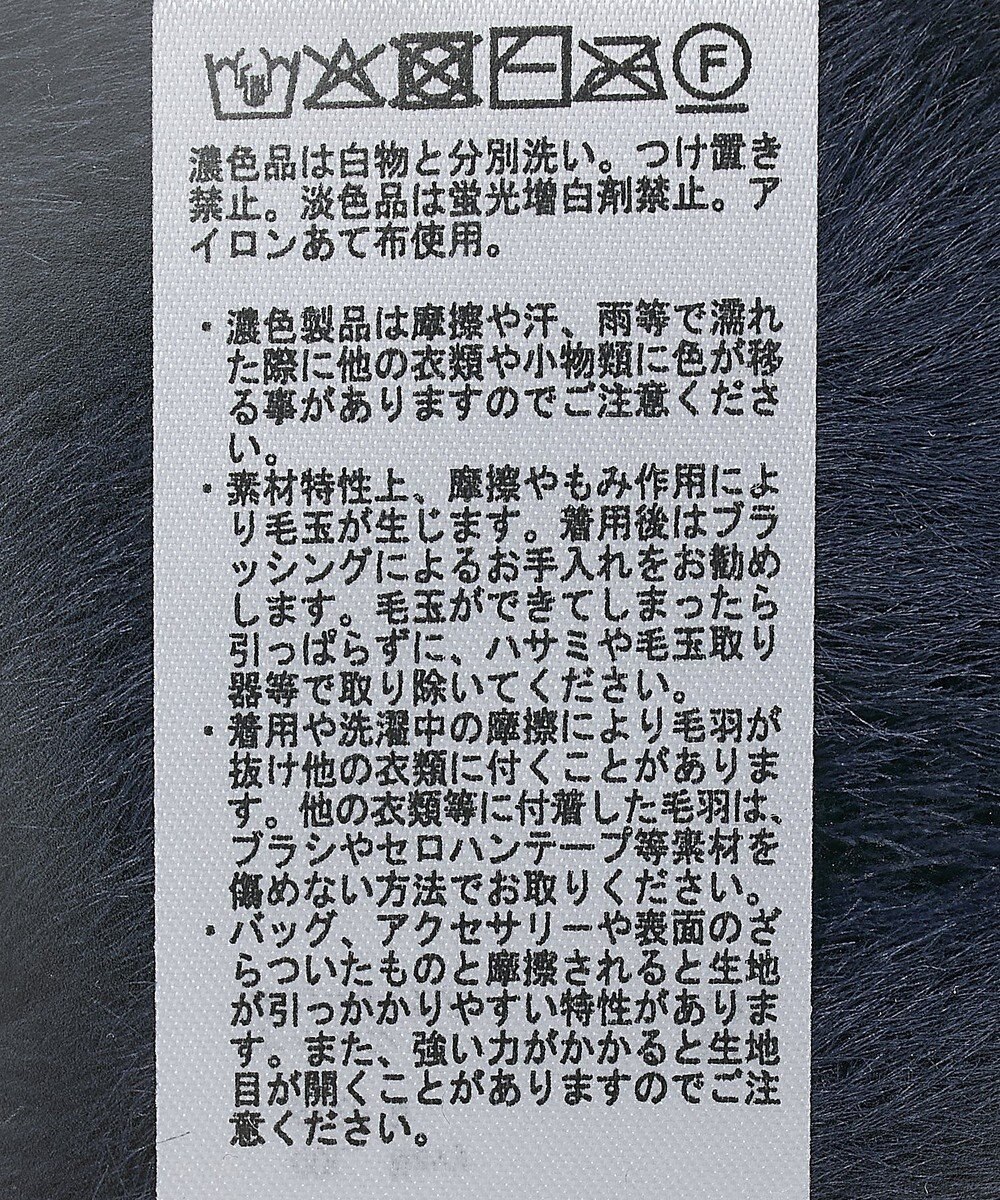 F
濃色品は白物と分別洗い。つけ置き
禁止。淡色品は蛍光増白剤禁止。ア
イロンあて布使用。
・濃色製品は摩擦や汗、雨等で濡れ
た際に他の衣類や小物類に色が移
る事がありますのでご注意くださ
い。
・素材特性上、摩擦やもみ作用によ
り毛玉が生じます。着用後はブラ
ッシングによるお手入れをお勧め
します。毛玉ができてしまったら
引っぱらずに、ハサミや毛玉取り
器等で取り除いてください。
・着用や洗濯中の摩擦により毛羽が
抜け他の衣類に付くことがありま
す。他の衣類等に付着した毛羽は、
ブラシやセロハンテープ等素材を
傷めない方法でお取りください。
・バッグ、アクセサリーや表面のざ
らついたものと摩擦されると生地
が引っかかりやすい特性がありま
す。また、強い力がかかると生地
目が開くことがありますのでご注
意ください。